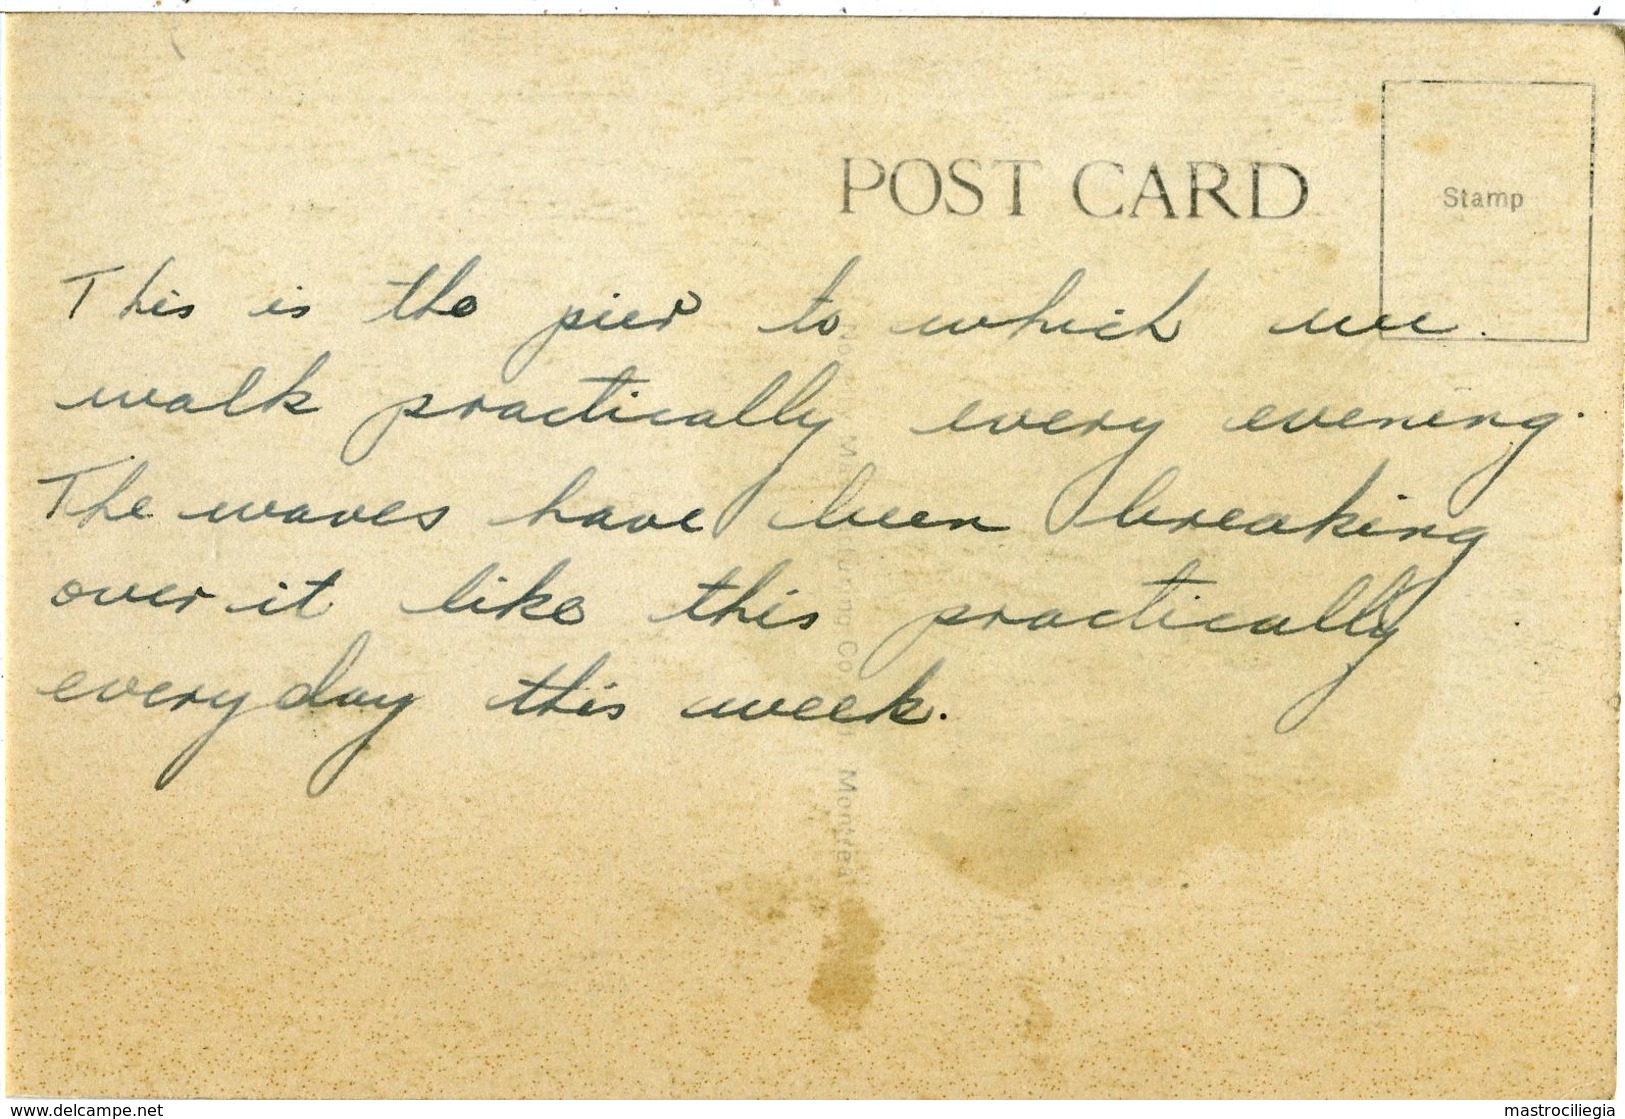 POST CARD
Stamp
This is the pier to which we
walk practically every evening.
The waves have been breaking
over it like this practically
every day this week.
Montreal
www.delcampe.net
mastrociliegia